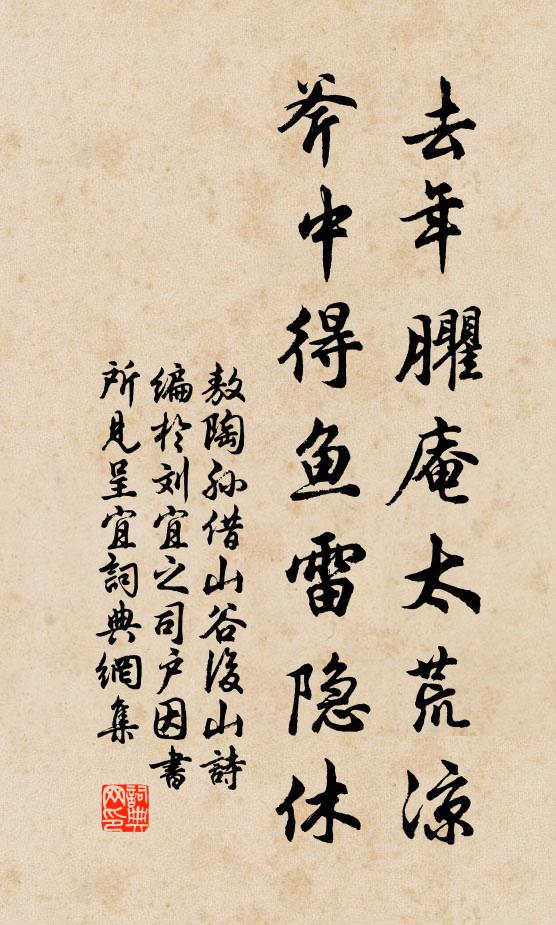 去年臞庵太荒凉
斧中得鱼雷隐休
敖陶孙借山谷後山詩
编於刘宜之司户因書
所見呈宜詞典網集
詞典网印